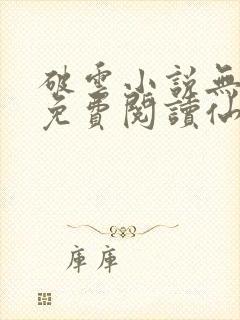 破雲小說無
免費閱讀仙
庫庫